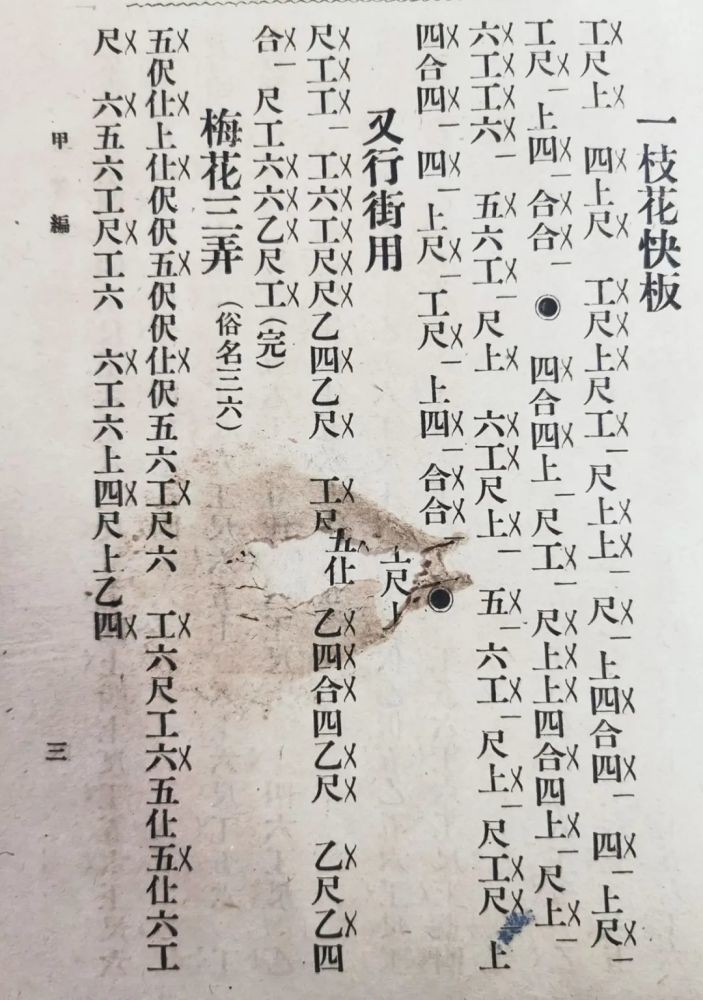 一枝花快板
工尺上 四上尺 工尺上尺工 尺上上 尺上四合四 四上尺
工尺上四 合合 ◉ 四合四上 尺工 尺上上四合四上 尺上
六工工六 五六工 尺上 六工尺上 五六工 尺上 尺工尺 上
四合四 四上尺 工尺上四 合合 ◉
又行街用
尺上
尺工工 工六工尺尺乙四乙尺 工尺五仕 乙四合四乙尺 乙尺乙四
合 尺工六六乙尺工(完)
梅花三弄(俗名三六)
五伬仕上仕伬伬五伬伬仕伬五六工尺六 工六尺工六五仕五仕六工
尺 六五六工尺工六 六工六上四尺上乙四
甲編 三